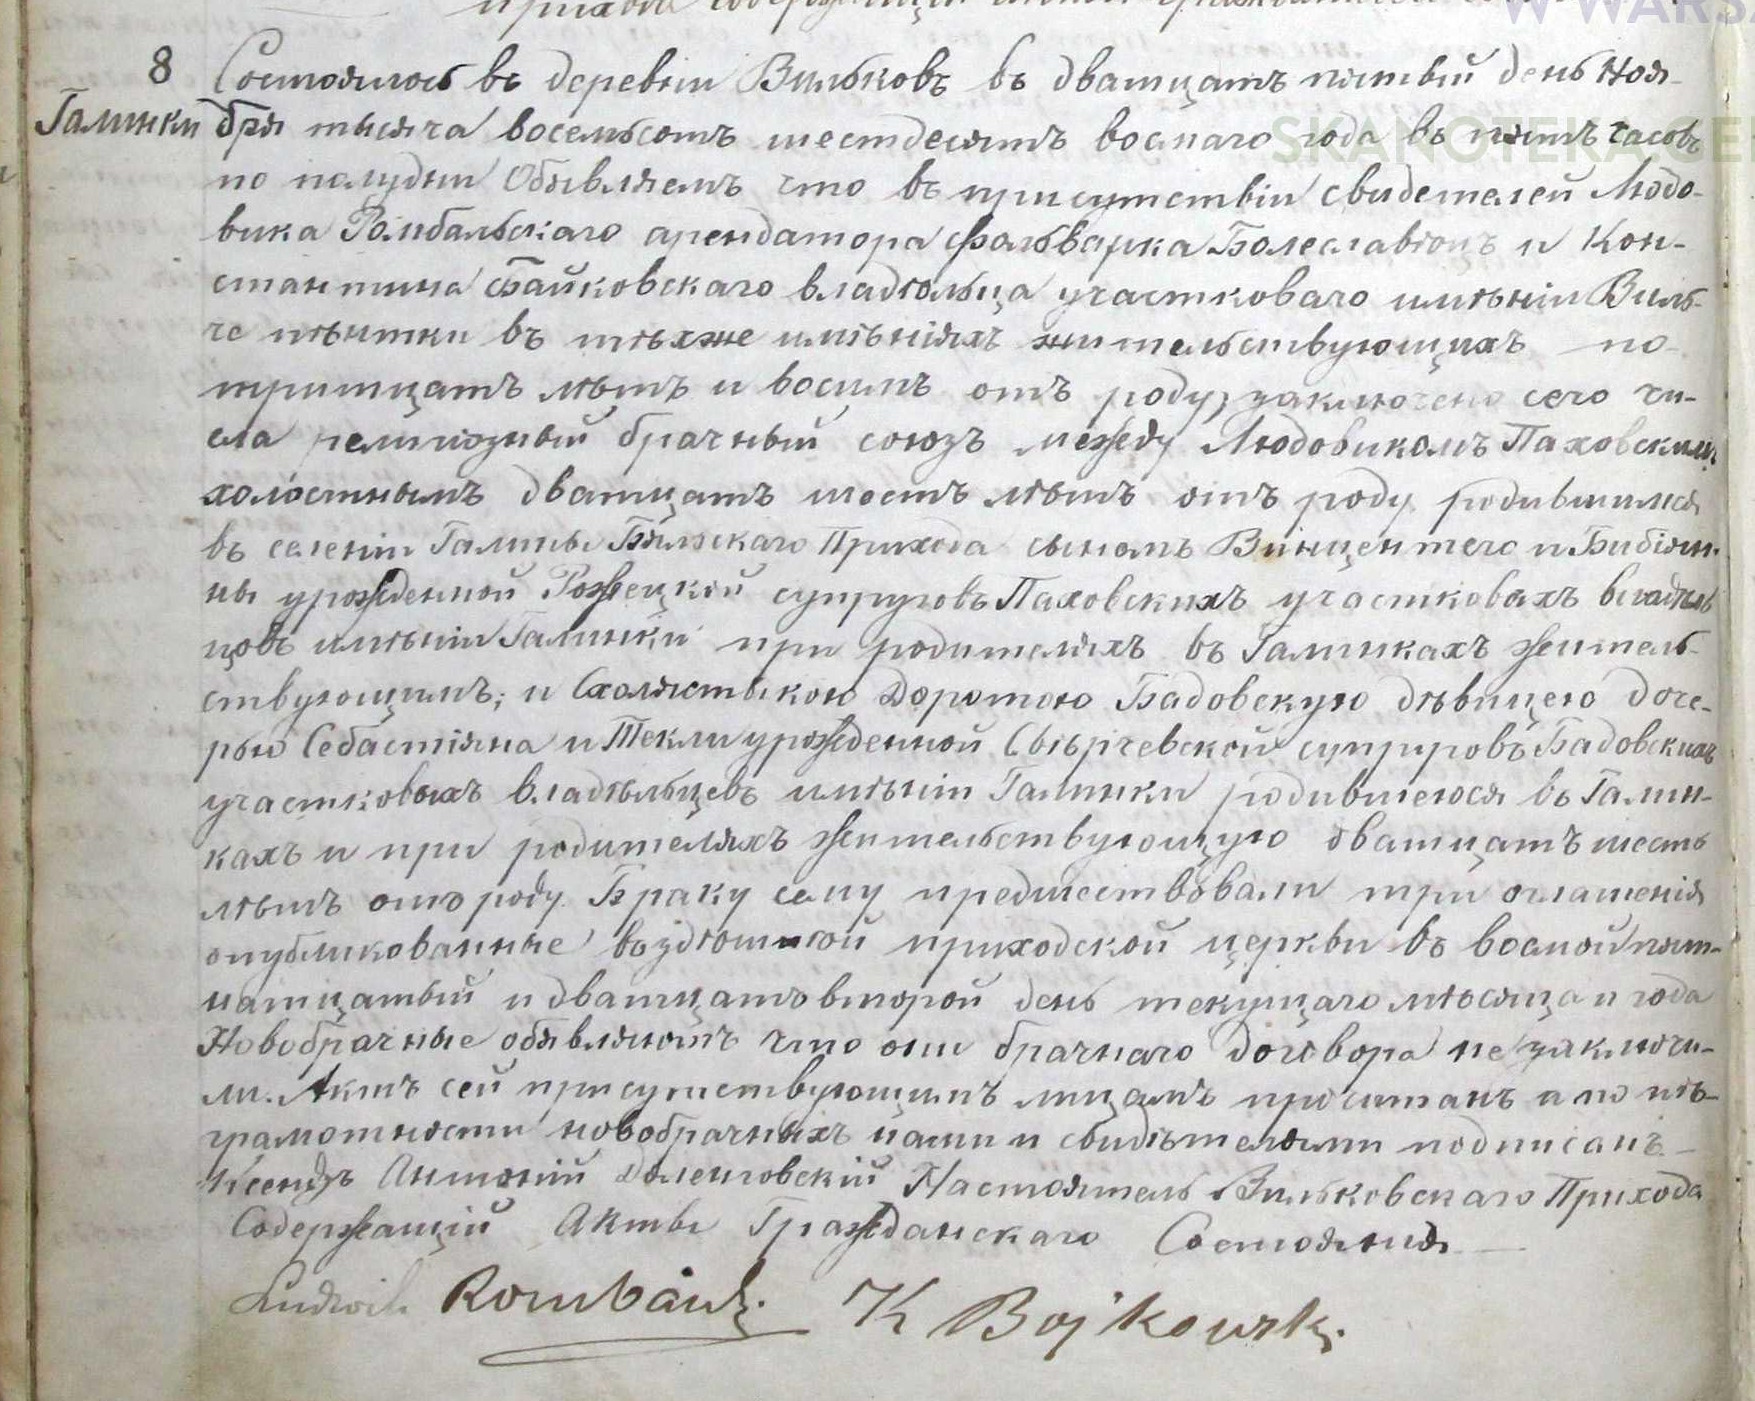 W WARS
8 Состоялось въ деревни Вильковъ въ дватцатъ пятый день Ноя-
Галинки бря тысяча восемьсотъ шестдесятъ восмаго года въ пятъ часовъ
SKANOTEKA.GE
по полудни Объявляемъ что въ присутствіи свидетелей Людо-
вика Ромбальскаго арендатора фольварка Болеславіоцъ и Кон-
стантина Байковскаго владѣльца участковаго имѣніи Виль-
въ тѣхже имѣніяхъ жительствующихъ по
тритцатъ лѣтъ и восимъ отъ роду, заключено сего чи-
сла религіозный брачный союзъ между Людовикомъ Паховскимъ
холостымъ дватцатъ шестъ лѣтъ отъ роду родившимся
въ селеніи Галины Бѣльскаго Прихода сыномъ Винцентего и Бибіян-
ны урожденной Рожецкой супруговъ Паховскихъ участковахъ владѣль
цовъ имѣніи Галинки при родителяхъ въ Галинкахъ житель-
ствующимъ; и Схолястыкою Доротою Бадовскую дѣвицею доче-
рью Себастіяна и Текли урожденной Свѣрчевской супруговъ Бадовскихъ
участковахъ владѣльцевъ имѣніи Галинки родившеюся въ Галин-
кахъ и при родителяхъ жительствующую дватцатъ шесть
лѣтъ отъ роду. Браку сему предшествовали три оглашенія
опубликованные въздѣшнюй приходской церкви въ восмой пят-
натцатый и дватцатъ второй день текущаго мѣсяца и года
Новобрачные объявляютъ что они брачнаго договора не заключи-
ли. Актъ сей присутствующимъ лицамъ прочитанъ а по нѣ-
грамотности новобрачныхъ нами и свидѣтелями подписанъ —
Ксендзъ Антоній Доленговскій Настоятель Вильковскаго Прихода
Содержащій Акты Гражданскаго Состоянія —
Ludwik Rombalski. K Bojkowski.